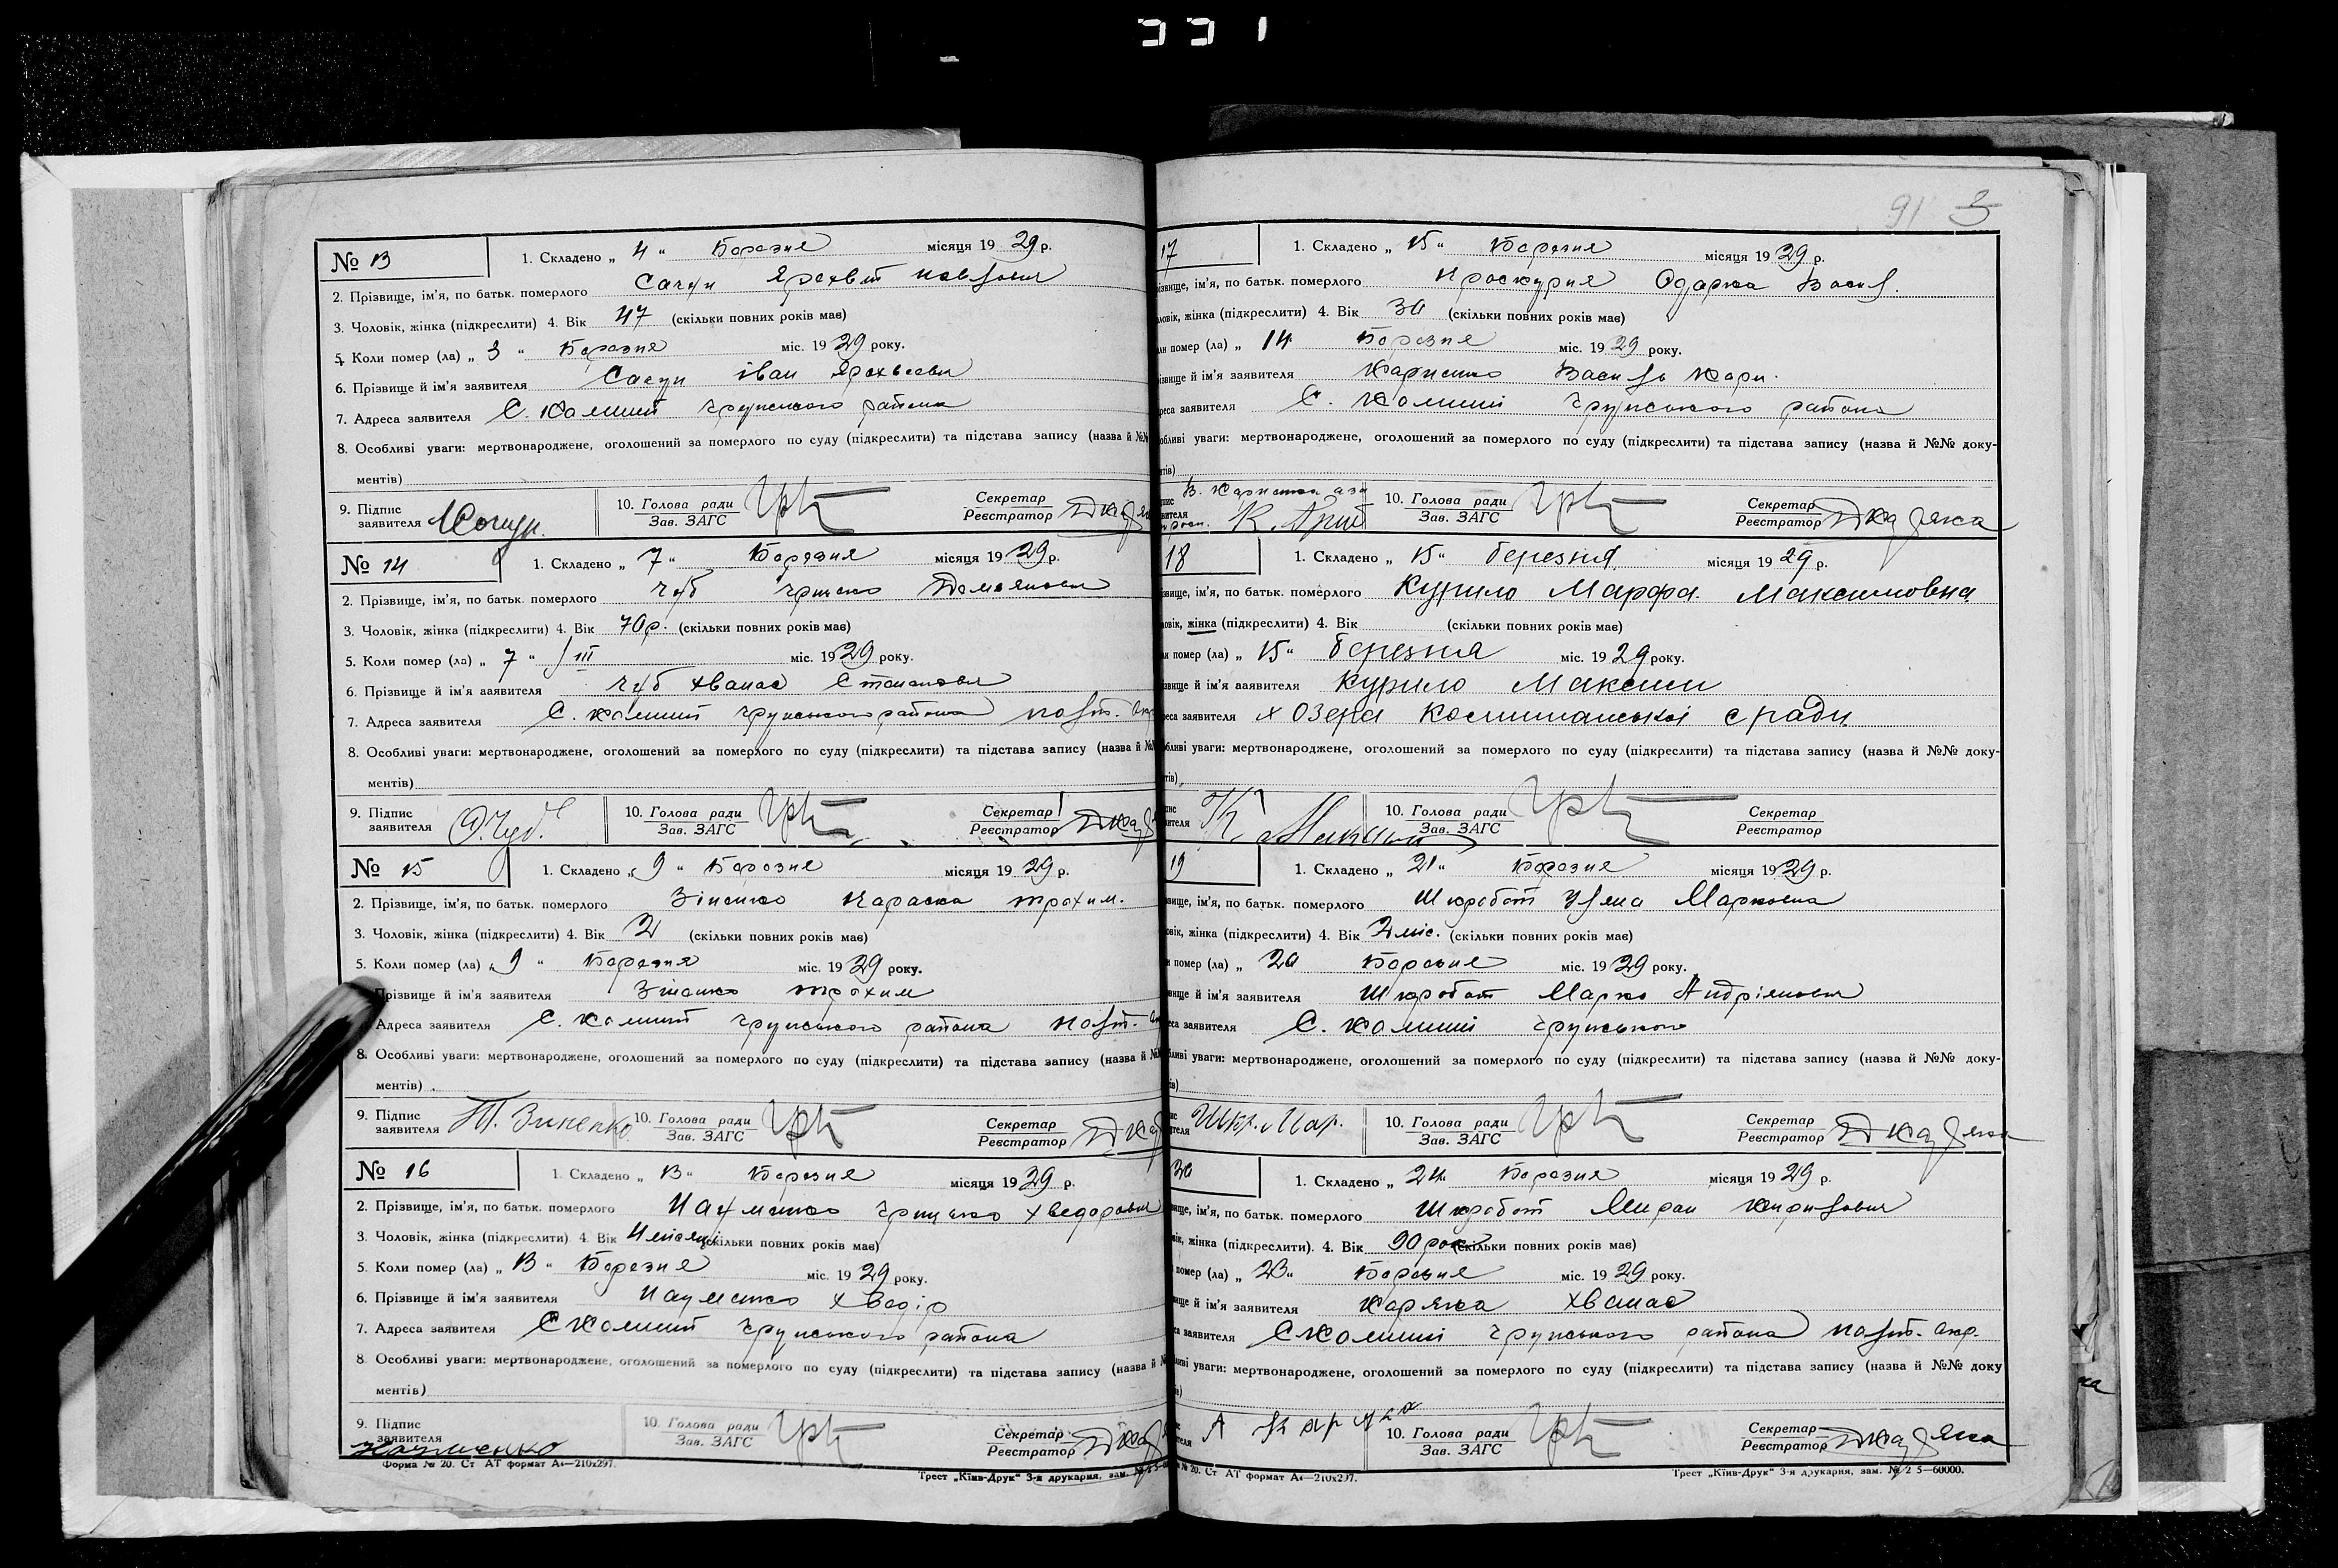 91 3
№ 13
1. Складено „ 4 “ Березня місяця 1929 р.
2. Прізвище, ім'я, по батьк. померлого
3. Чоловік, жінка (підкреслити) 4. Вік 47 (скільки повних років має)
5. Коли помер (ла) „ 3 “ Березня міс. 1929 року.
6. Прізвище й ім'я заявителя Іван
7. Адреса заявителя С. Комиші Грунського района
8. Особливі уваги: мертвонароджене, оголошений за померлого по суду (підкреслити) та підстава запису (назва й №№
ментів)
9. Підпис заявителя
10. Голова ради Зав. ЗАГС
Секретар Реєстратор
№ 14
1. Складено „ 7 “ Березня місяця 1929 р.
2. Прізвище, ім'я, по батьк. померлого Чуб Грицько Домьянови
3. Чоловік, жінка (підкреслити) 4. Вік 70 р. (скільки повних років має)
5. Коли помер (ла) „ 7 “ / III міс. 1929 року.
6. Прізвище й ім'я заявителя Чуб Хванас Степанови
7. Адреса заявителя С. Комиші Грунського района Полт.
8. Особливі уваги: мертвонароджене, оголошений за померлого по суду (підкреслити) та підстава запису (назва й №№
ментів)
9. Підпис заявителя О. Чуб.
10. Голова ради Зав. ЗАГС
Секретар Реєстратор
№ 15
1. Складено „ 9 “ Березня місяця 1929 р.
2. Прізвище, ім'я, по батьк. померлого Зіненко Параска Трохим.
3. Чоловік, жінка (підкреслити) 4. Вік 2 (скільки повних років має)
5. Коли помер (ла) „ 9 “ Березня міс. 1929 року.
Прізвище й ім'я заявителя Зіненко Трохим
Адреса заявителя С. Комиші Грунського района Полт.
8. Особливі уваги: мертвонароджене, оголошений за померлого по суду (підкреслити) та підстава запису (назва й №№
ментів)
9. Підпис заявителя Т. Зиненко
10. Голова ради Зав. ЗАГС
Секретар Реєстратор
№ 16
1. Складено „ 13 “ Березня місяця 1929 р.
2. Прізвище, ім'я, по батьк. померлого Науменко Грицько Хведорови
3. Чоловік, жінка (підкреслити) 4. Вік 4 місяці (скільки повних років має)
5. Коли помер (ла) „ 13 “ Березня міс. 1929 року.
6. Прізвище й ім'я заявителя Науменко Хведір
7. Адреса заявителя С Комиші Грунського района
8. Особливі уваги: мертвонароджене, оголошений за померлого по суду (підкреслити) та підстава запису (назва й №
ментів)
9. Підпис заявителя Науменко
10. Голова ради Зав. ЗАГС
Секретар Реєстратор
Форма № 20. Ст АТ формат А4—210х297.
Трест „Київ-Друк“ 3-я друкарня, зам. №
17
1. Складено „ 15 “ Березня місяця 1929 р.
ізвище, ім'я, по батьк. померлого Проскурня Одарка Васил.
ловік, жінка (підкреслити) 4. Вік 30 (скільки повних років має)
ли помер (ла) „ 14 Березня міс. 1929 року.
ізвище й ім'я заявителя Карпенко Василь Карп.
реса заявителя С. Комиші Грунського района
обливі уваги: мертвонароджене, оголошений за померлого по суду (підкреслити) та підстава запису (назва й №№ доку-
нтів)
10. Голова ради Зав. ЗАГС
Секретар Реєстратор
18
1. Складено „ 15 “ березня місяця 1929 р.
звище, ім'я, по батьк. померлого Курило Марфа Максимовна
овік, жінка (підкреслити) 4. Вік (скільки повних років має)
и помер (ла) „ 15 “ березня міс. 1929 року.
звище й ім'я заявителя Курило Максим
еса заявителя х Озера Комишанської с ради
бливі уваги: мертвонароджене, оголошений за померлого по суду (підкреслити) та підстава запису (назва й №№ доку-
тів)
К Максим
10. Голова ради Зав. ЗАГС
Секретар Реєстратор
19
1. Складено „ 21 “ Березня місяця 1929 р.
звище, ім'я, по батьк. померлого Шкробот Уляна Марковна
овік, жінка (підкреслити) 4. Вік 2 міс. (скільки повних років має)
и помер (ла) „ 20 Березня міс. 1929 року.
вище й ім'я заявителя Шкробот Марко Андріянови
еса заявителя С. Комиші Грунського
бливі уваги: мертвонароджене, оголошений за померлого по суду (підкреслити) та підстава запису (назва й №№ доку-
ів)
Шкр. Мар.
10. Голова ради Зав. ЗАГС
Секретар Реєстратор
1. Складено „ 24 Березня місяця 1929 р.
вище, ім'я, по батьк. померлого Шкробот Мирон Кирилови
вік, жінка (підкреслити). 4. Вік 90 рок (скільки повних років має)
помер (ла) „ 23 “ Березня міс. 1929 року.
вище й ім'я заявителя Каряка Хванас
са заявителя С Комиші Грунського района Полт. окр.
ливі уваги: мертвонароджене, оголошений за померлого по суду (підкреслити) та підстава запису (назва й №№ доку
10. Голова ради Зав. ЗАГС
Секретар Реєстратор
№ 20. Ст АТ формат А4—210х297.
Трест „Київ-Друк“ 3-я друкарня, зам. № 2 5—60000.